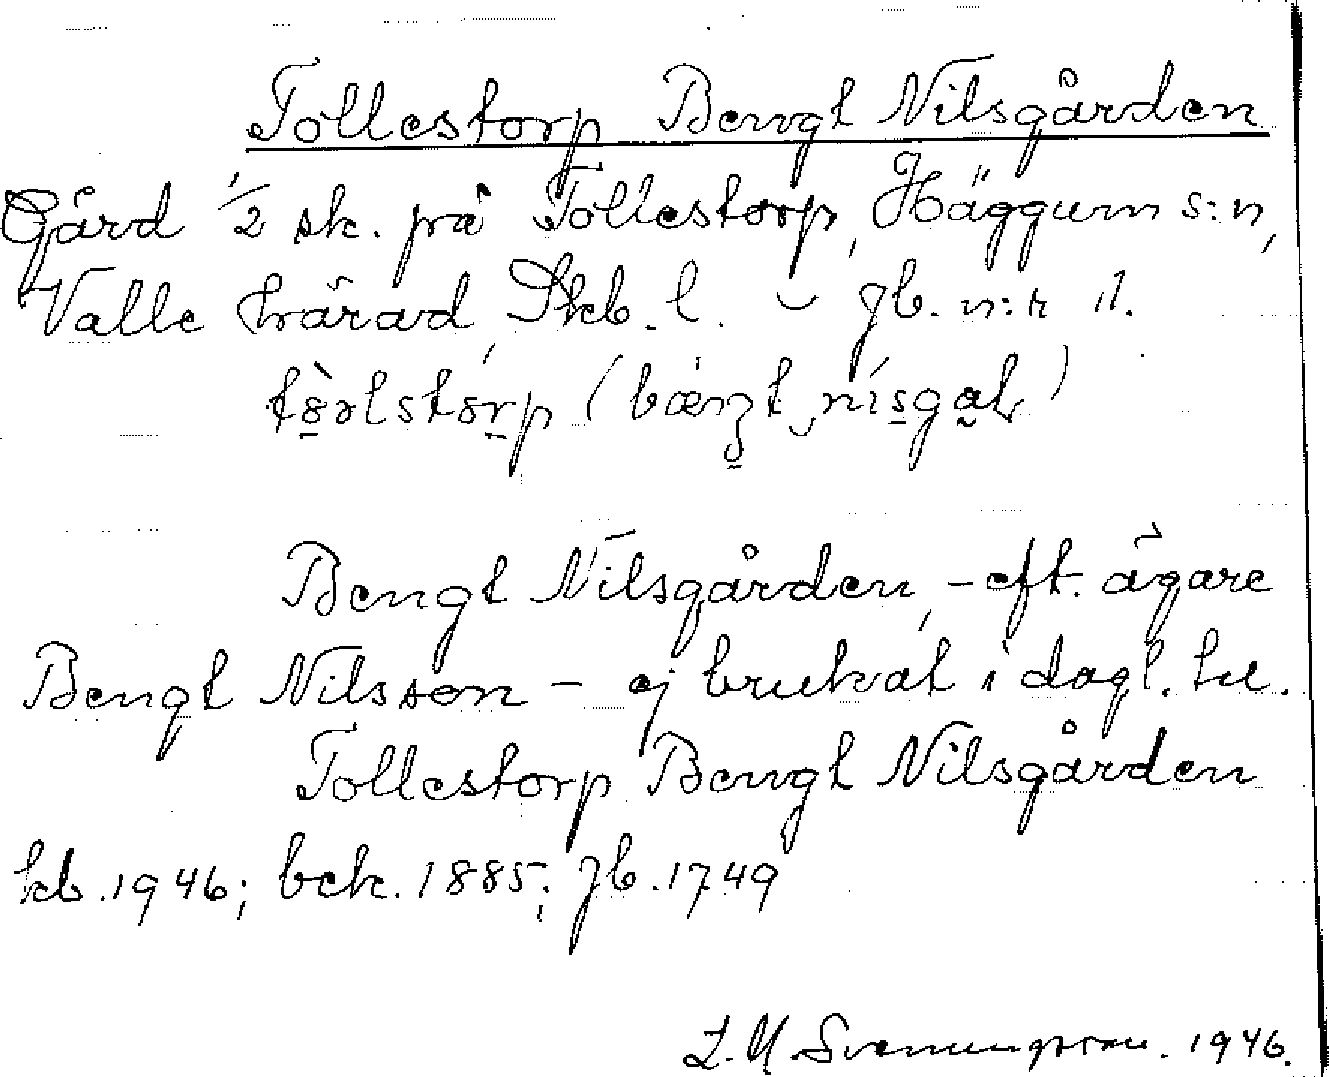 Tollestorp Bengt Nilsgården
Gård 1/2 sk. på Tollestorp, Häggum s:n,
Valle härad, Skb. l. – jb. n:r 11.
Bengt Nilsgården, – eft. ägare
Bengt Nilsson – ej brukat i dagl. tal.
Tollestorp Bengt Nilsgården
kb. 1946; bek. 1885; jb. 1749
Svenungsson. 1946.